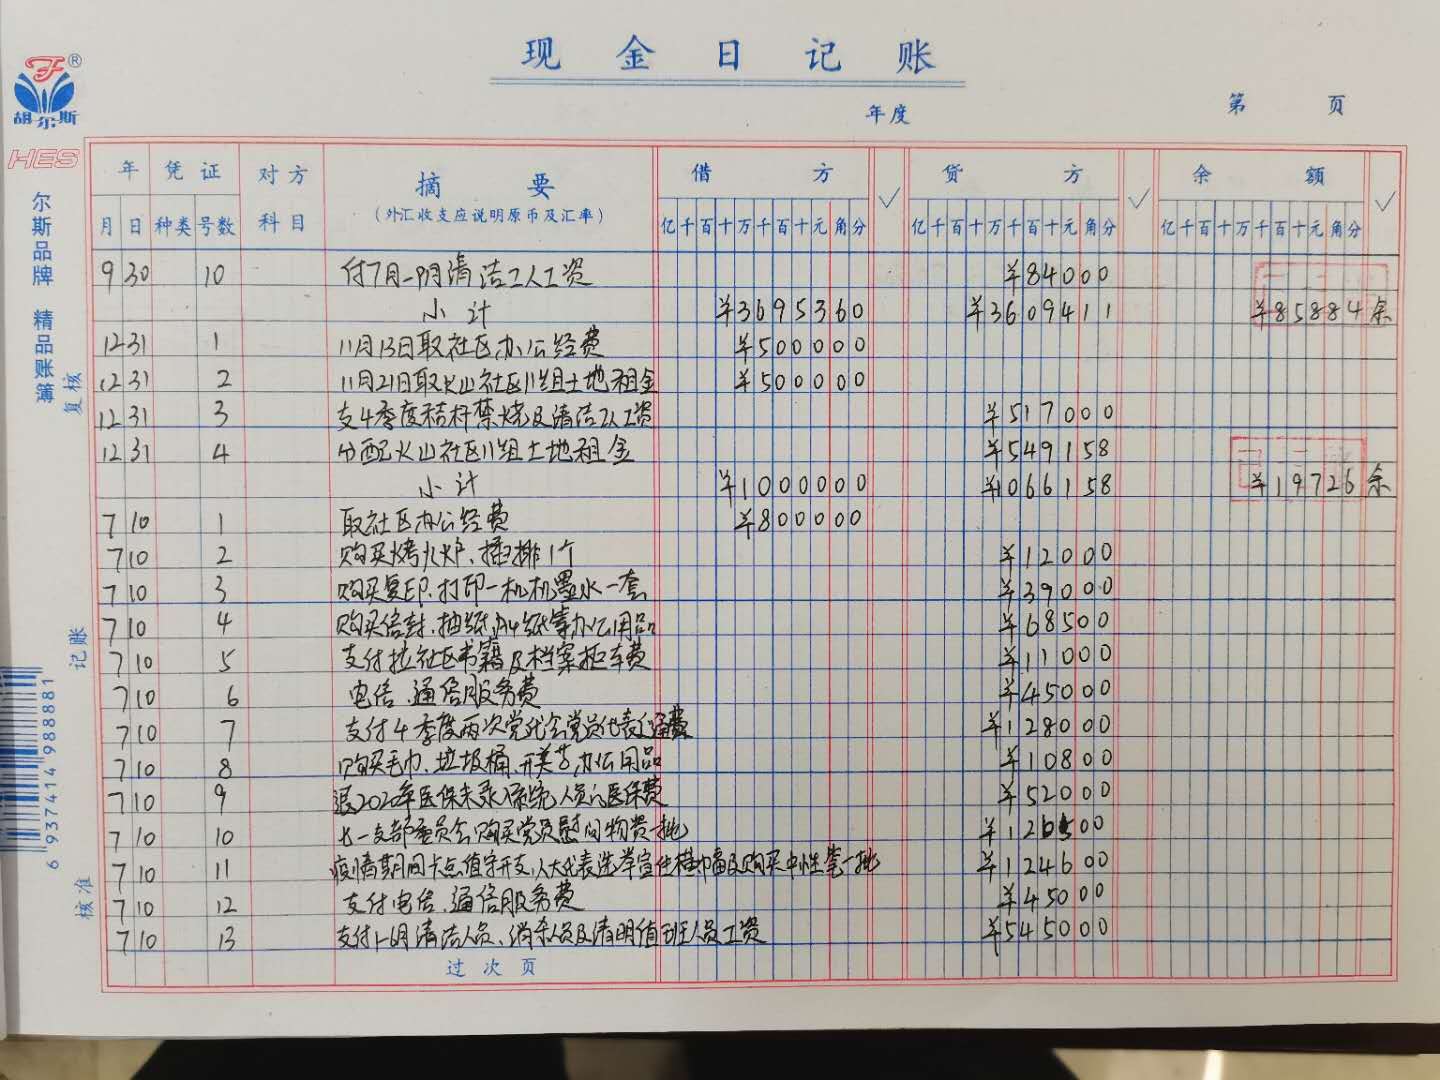 现 金 日 记 账
年度
第 页
胡尔斯
HES
尔斯品牌 精品账簿
复核
记账
核准
6 937414 988881
年 凭 证 对 方 摘 要 借 方 贷 方 余 额
月 日 种类 号数 科 目 (外汇收支应说明原币及汇率) 亿千百十万千百十元角分 亿千百十万千百十元角分 亿千百十万千百十元角分
9 30 10 付7月-9月清洁工人工资 ¥84000
小计 ¥3695360 ¥3609411 ¥85884 余
12 31 1 11月13日取社区办公经费 ¥500000
12 31 2 11月21日取火山社区11组土地租金 ¥500000
12 31 3 支4季度秸秆禁烧及清洁工工资 ¥517000
12 31 4 分配火山社区11组土地租金 ¥549158
小计 ¥1000000 ¥1066158 ¥19726 余
7 10 1 取社区办公经费 ¥800000
7 10 2 购买烤火炉、插排1个 ¥12000
7 10 3 购买复印、打印一机机墨水一套 ¥39000
7 10 4 购买信封、抽纸、A4纸等办公用品 ¥68500
7 10 5 支付拉社区书籍及档案柜车费 ¥11000
7 10 6 电信、通信服务费 ¥45000
7 10 7 支付4季度两次党代会党员代表交通费 ¥128000
7 10 8 购买毛巾、垃圾桶、办公用品 ¥10800
7 10 9 退2020年医保未录入系统人员的医保费 ¥52000
7 10 10 七一支部委员会购买党员慰问物费一批 ¥126500
7 10 11 疫情期间卡点值守开支、人大代表选举宣传横幅及购买中性笔一批 ¥124600
7 10 12 支付电信、通信服务费 ¥45000
7 10 13 支付1-6月清洁人员、消杀人员及清明值班人员工资 ¥545000
过 次 页